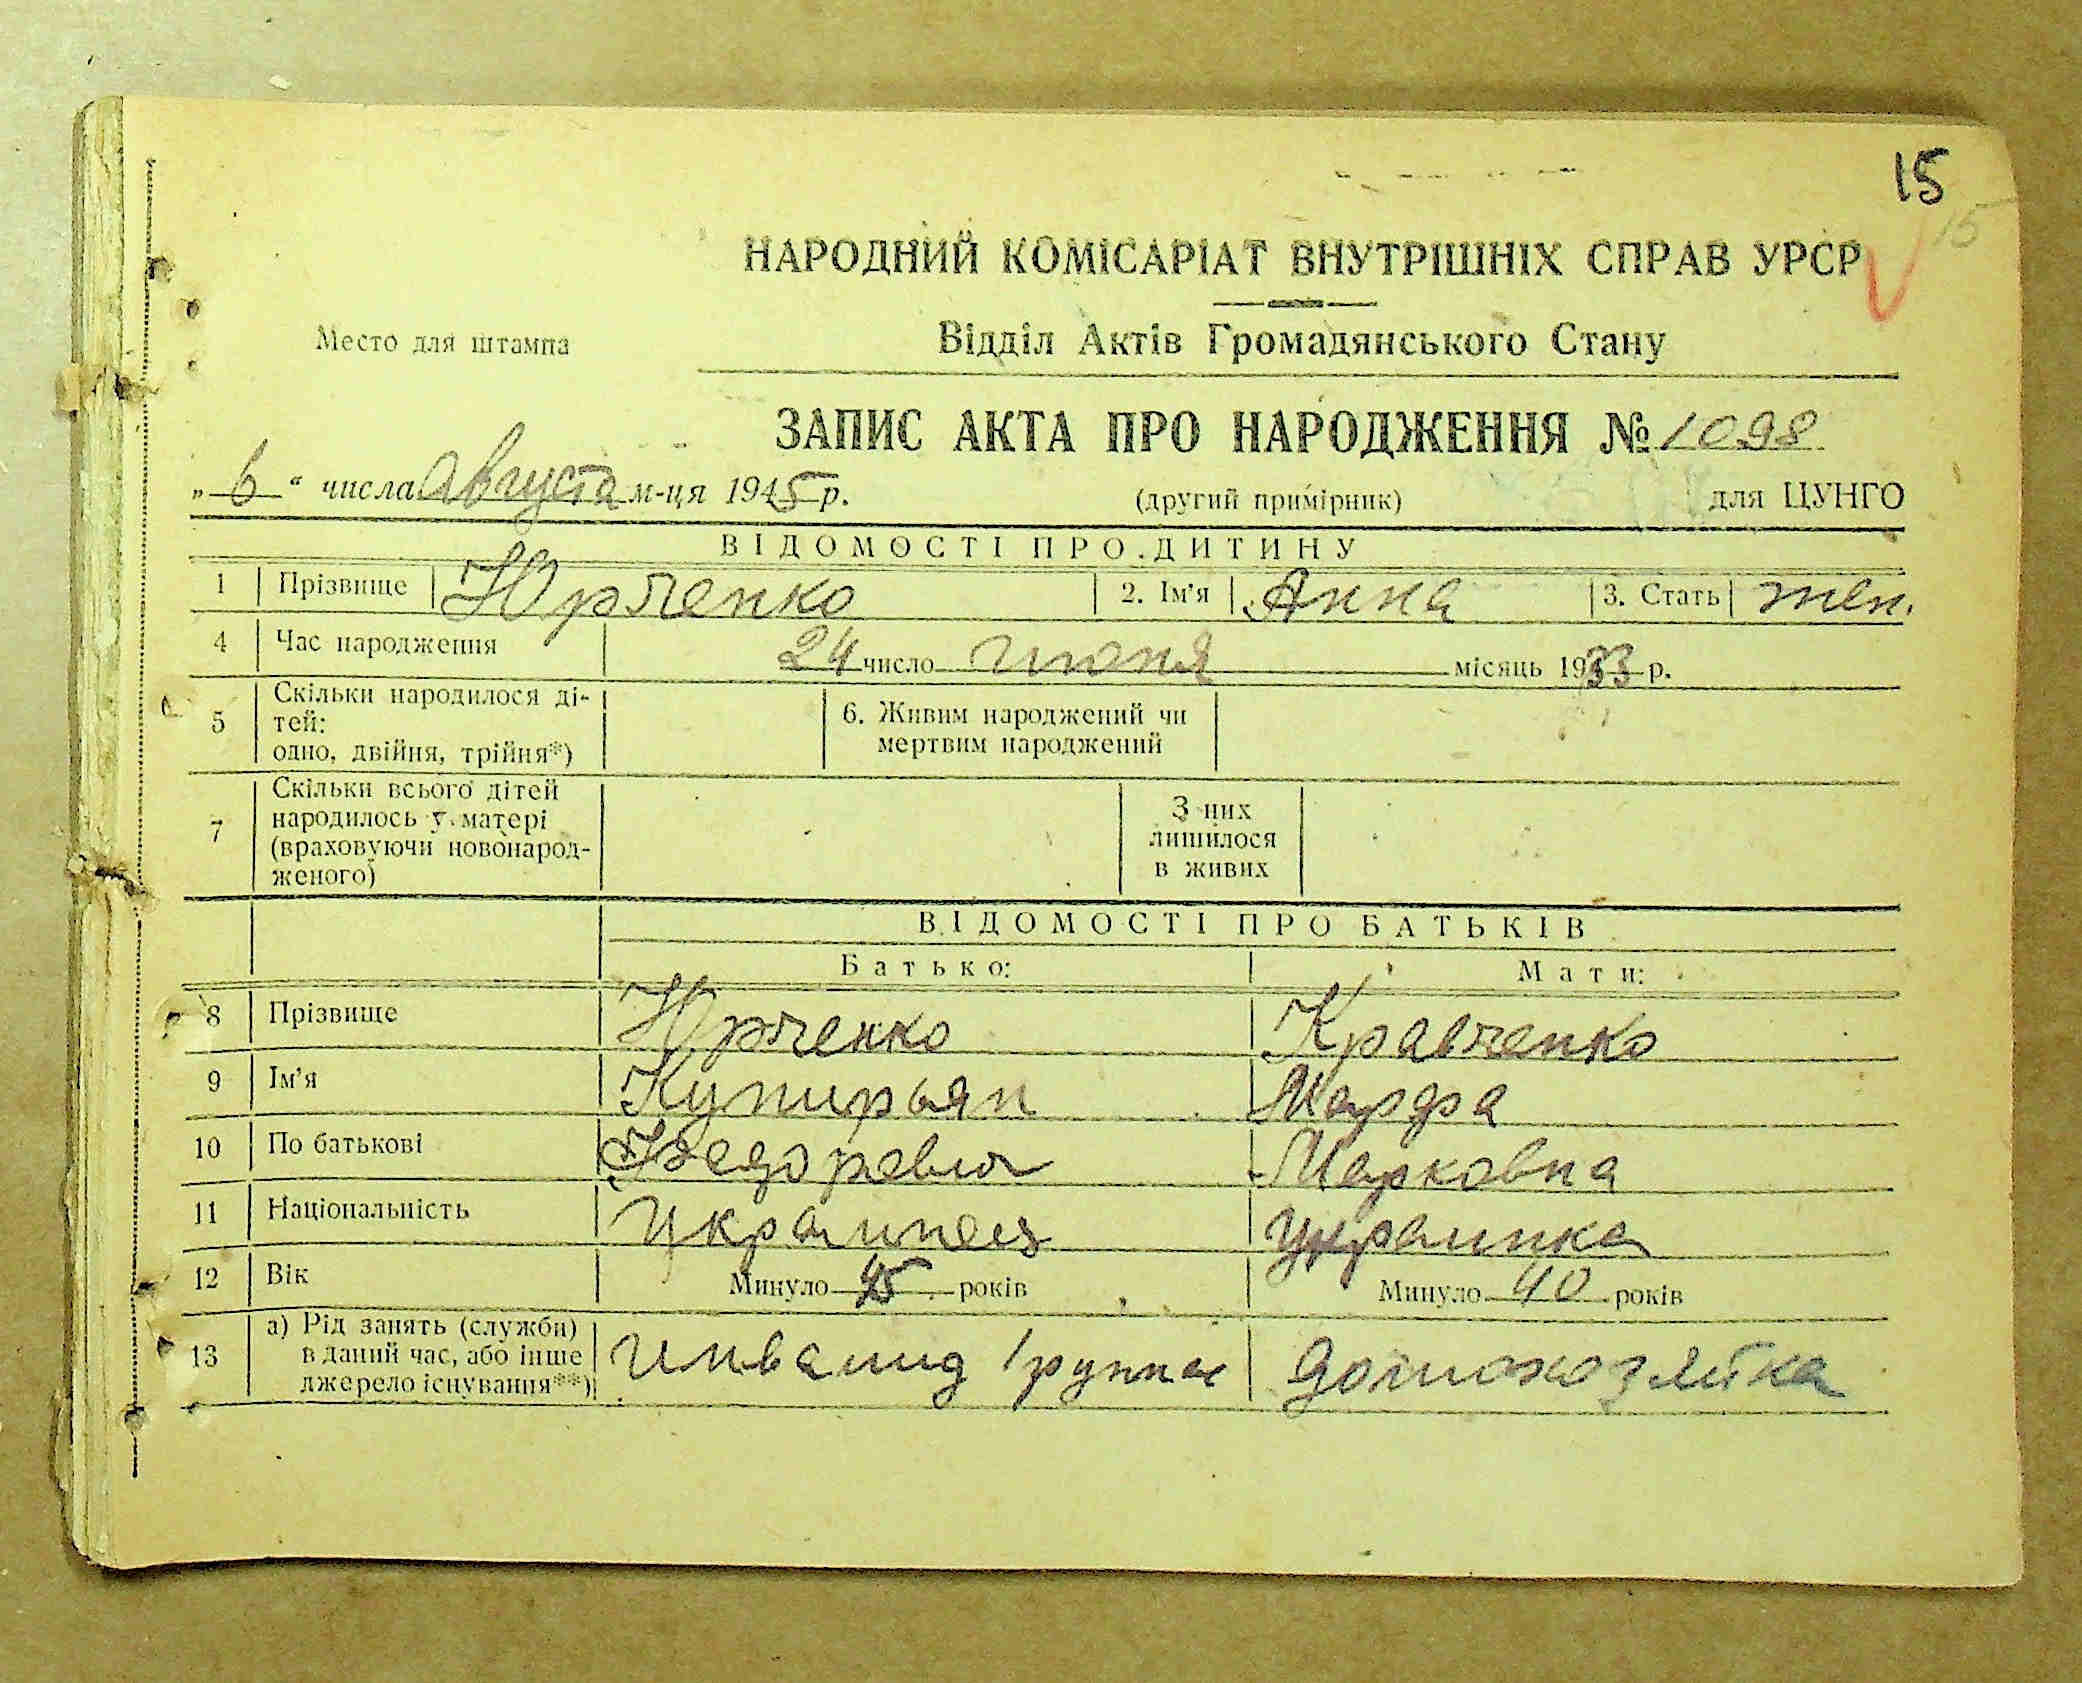 15
15
НАРОДНИЙ КОМІСАРІАТ ВНУТРІШНІХ СПРАВ УРСР
Место для штампа
Відділ Актів Громадянського Стану
ЗАПИС АКТА ПРО НАРОДЖЕННЯ № 1098
„ 6 “ числа Августа м-ця 1945 р. (другий примірник) для ЦУНГО
ВІДОМОСТІ ПРО ДИТИНУ
1 Прізвище Юрченко 2. Ім'я Анна 3. Стать жен.
4 Час народження 24 число июня місяць 1933 р.
5 Скільки народилося ді-
тей:
одно, двійня, трійня*)
6. Живим народжений чи
мертвим народжений
7 Скільки всього дітей
народилось у матері
(враховуючи новонарод-
женого)
З них
лишилося
в живих
ВІДОМОСТІ ПРО БАТЬКІВ
Батько: Мати:
8 Прізвище Юрченко Кравченко
9 Ім'я Куприьян Марфа
10 По батькові Федорович Марковна
11 Національність Украинец Украинка
12 Вік Минуло 45 років Минуло 40 років
13 а) Рід занять (служби)
в даний час, або інше
джерело існування**)
Инвалид группа домохозяйка